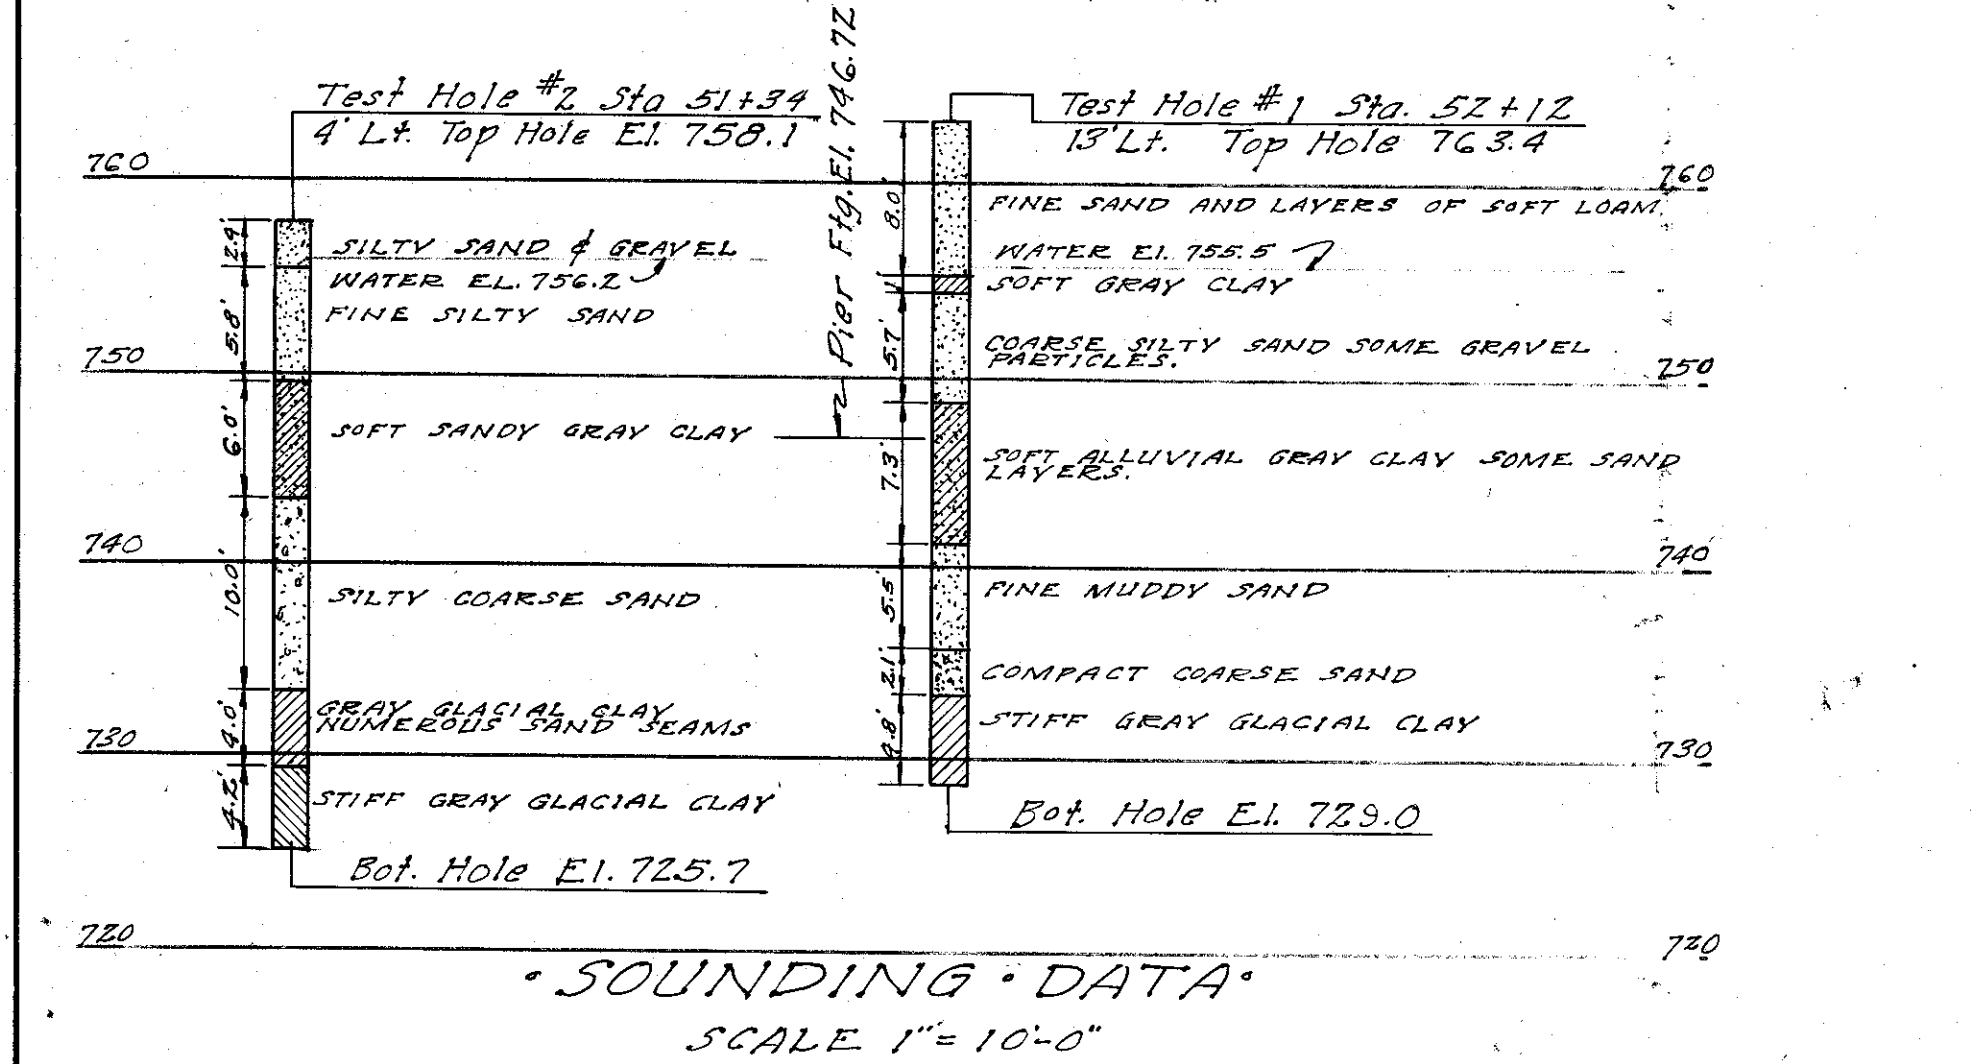 Test Hole #2 Sta 51+34
4' Lt. Top Hole El. 758.1
760
2.4'
SILTY SAND & GRAVEL
WATER EL. 756.2
5.8'
FINE SILTY SAND
750
6.0'
SOFT SANDY GRAY CLAY
740
10.0'
SILTY COARSE SAND
4.0'
GRAY GLACIAL CLAY
NUMEROUS SAND SEAMS
730
4.2'
STIFF GRAY GLACIAL CLAY
Bot. Hole El. 725.7
720
Pier Ftg. El. 746.72
Test Hole #1 Sta. 52+12
13' Lt. Top Hole 763.4
760
8.0'
FINE SAND AND LAYERS OF SOFT LOAM.
WATER El. 755.5
1'
SOFT GRAY CLAY
5.7'
COARSE SILTY SAND SOME GRAVEL
PARTICLES.
750
7.3'
SOFT ALLUVIAL GRAY CLAY SOME SAND
LAYERS.
740
5.5'
FINE MUDDY SAND
2.1'
COMPACT COARSE SAND
4.8'
STIFF GRAY GLACIAL CLAY
730
Bot. Hole El. 729.0
720
•SOUNDING•DATA•
SCALE 1"=10'-0"